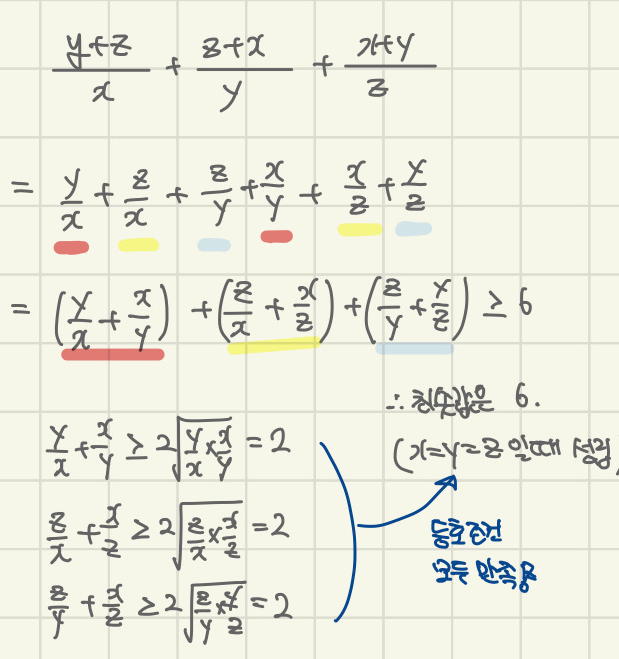 (y+z)/x + (z+x)/y + (x+y)/z
= y/x + z/x + z/y + x/y + x/z + y/z
= (y/x + x/y) + (z/x + x/z) + (z/y + y/z) ≥ 6
∴ 최솟값은 6.
(x=y=z 일때 성립)
y/x + x/y ≥ 2√(y/x × x/y) = 2
z/x + x/z ≥ 2√(z/x × x/z) = 2
z/y + x/z ≥ 2√(z/y × y/z) = 2
등호조건
모두 만족